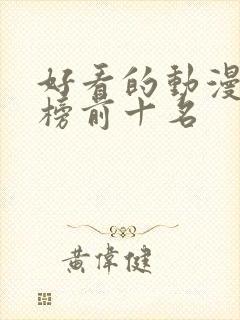 好看的動漫
榜前十名
黃偉健